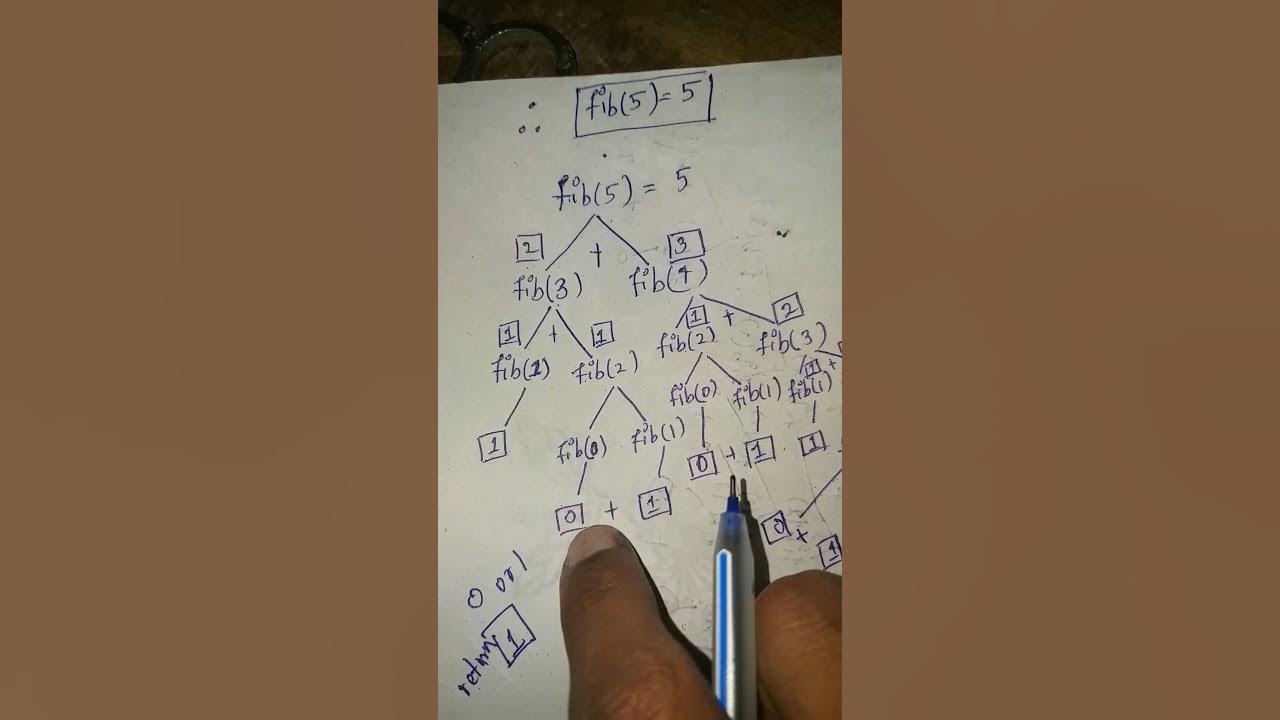 ∴ fib(5) = 5
fib(5) = 5
2 + 3
fib(3) fib(4)
1 + 1 1 + 2
fib(1) fib(2) fib(2) fib(3)
1 +
fib(0) fib(1) fib(1)
fib(0) fib(1)
1 0 + 1 1
0 + 1
0 + 1
0 or 1
return 1